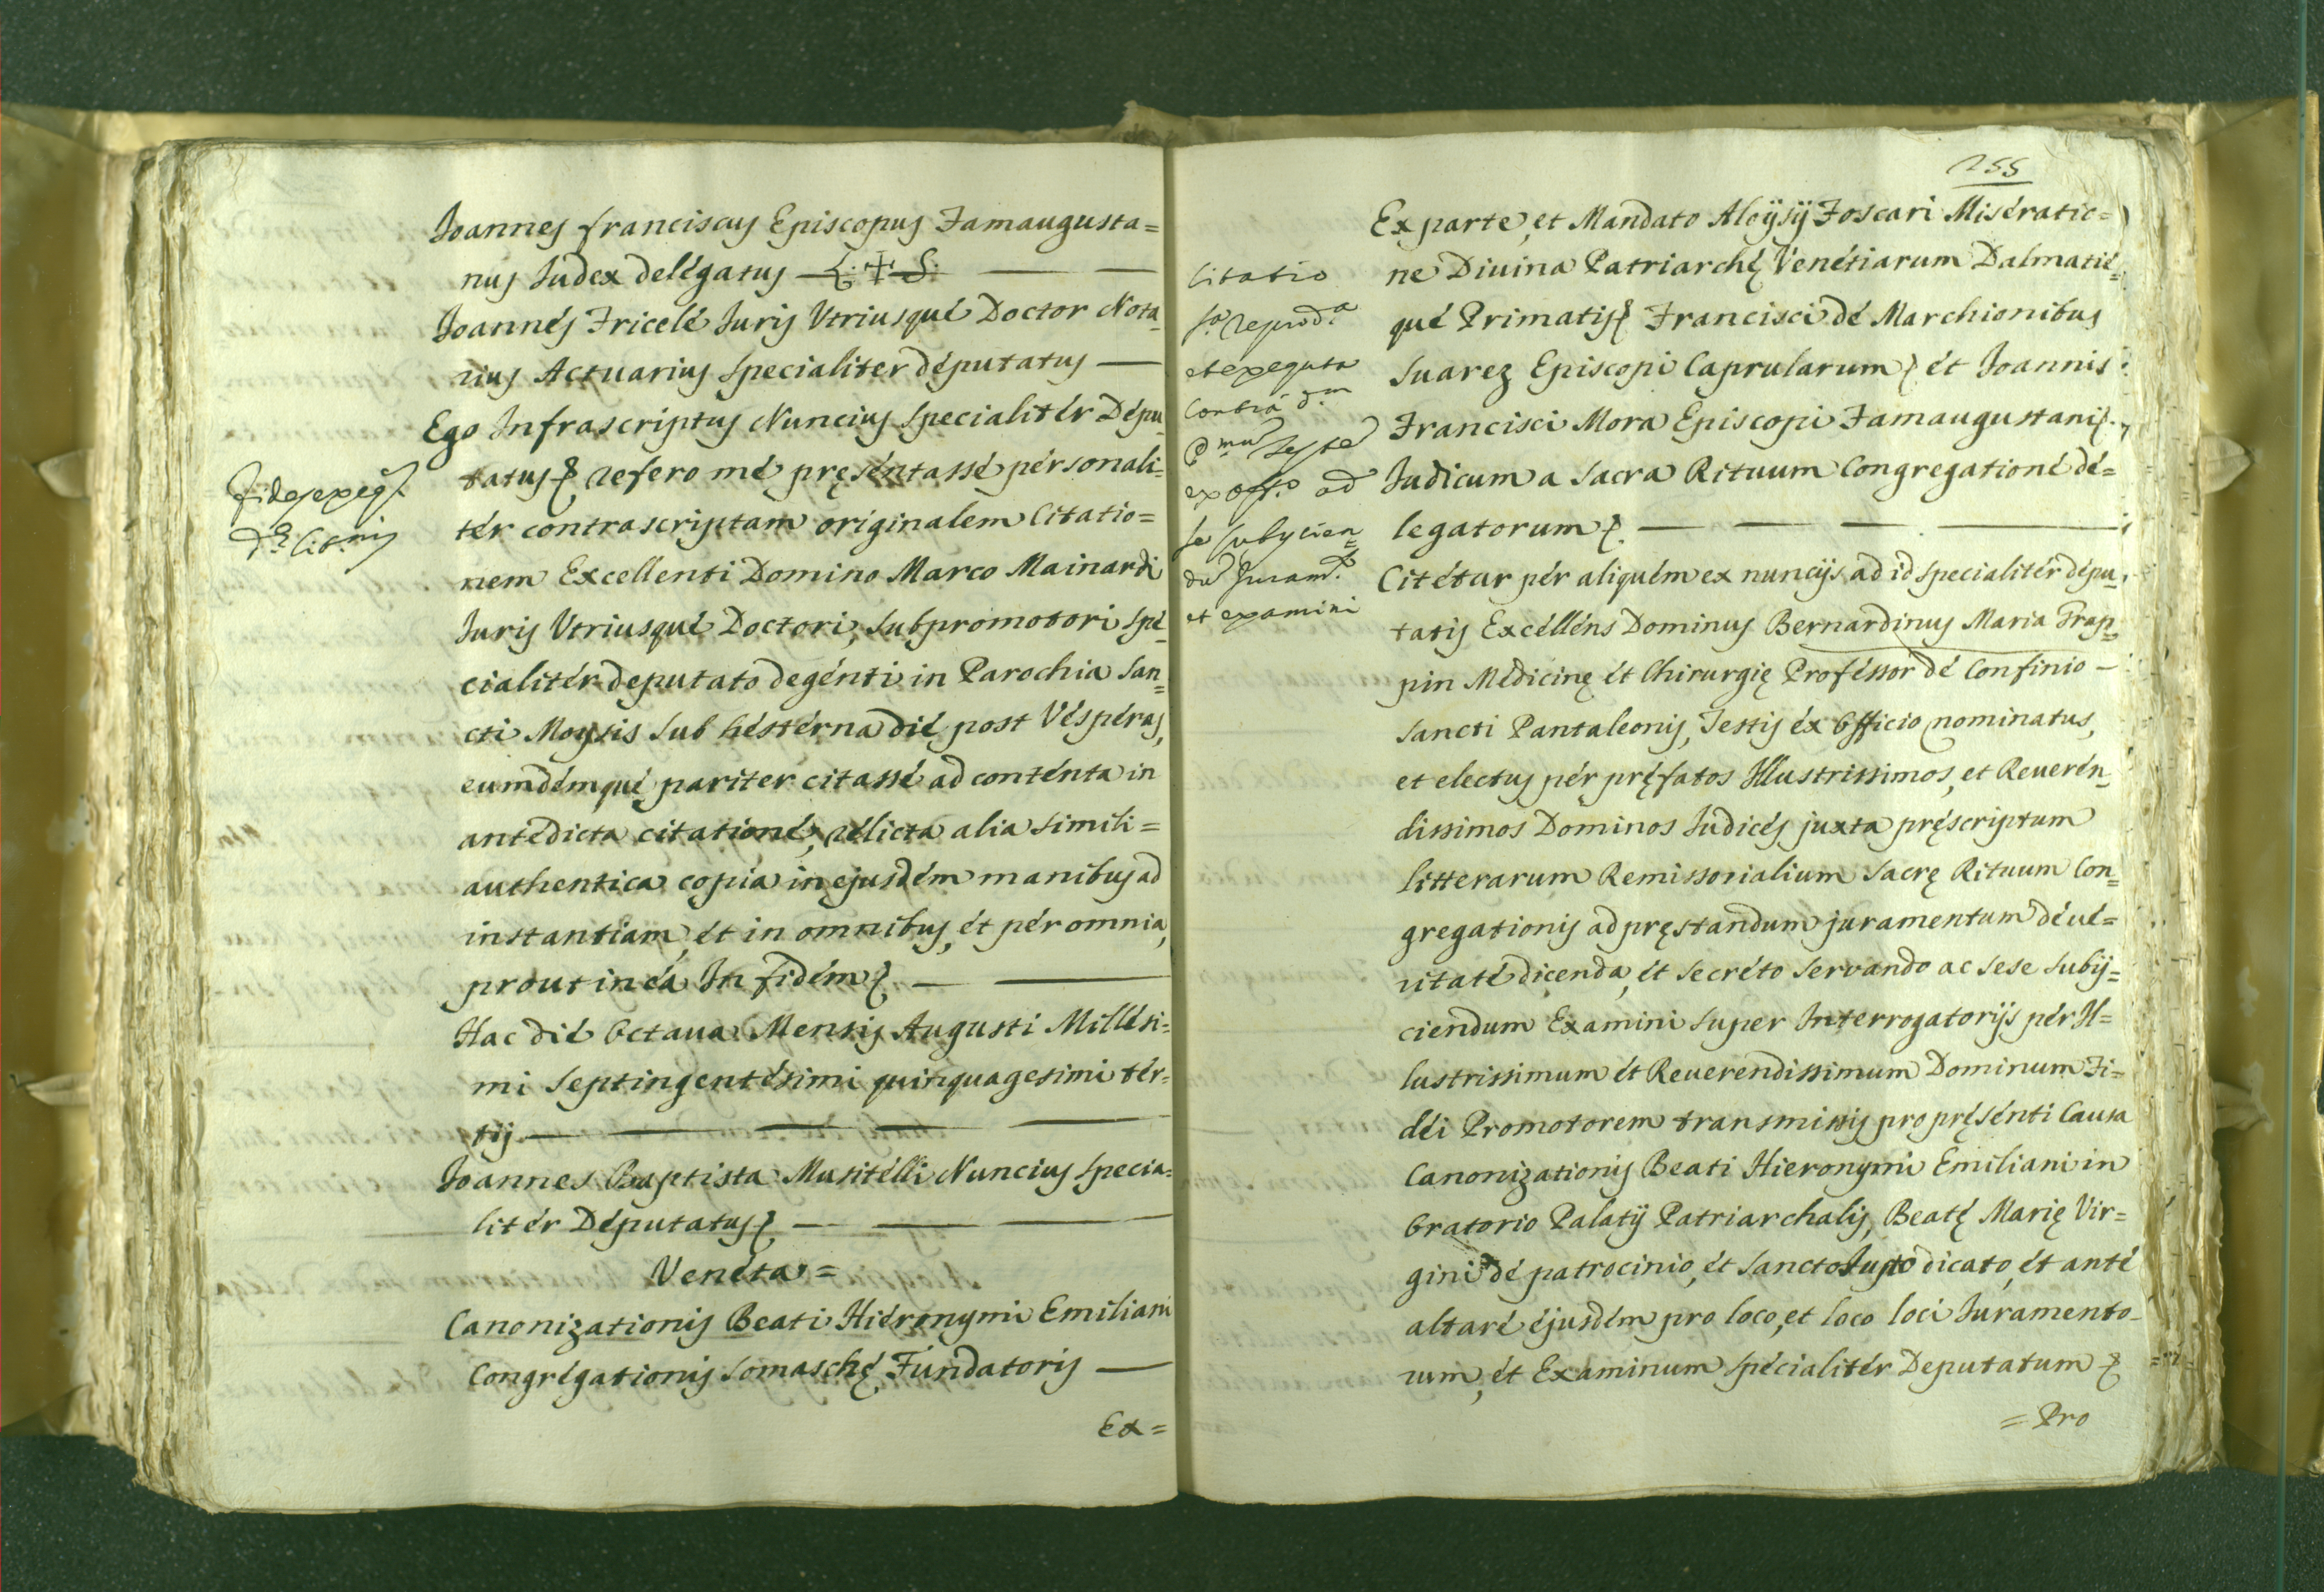 Joannes franciscus Episcopus Famaugusta=
nus Judex delégatus — L. + S. — —
Joannés Fricelé Juris Vtriusqué Doctor Nota
rius Actuarius specialiter députatus —
Ego Infrascriptus Nuncius specialitér Dépu
tatus refero mé pręséntassé pérsonali
tér contrascriptam originalem Citatio=
nem Excellenti Domino Marco Mainardi
Juris Vtriusqué Doctori, Subpromotori spé
cialitér deputato degénti in Parochia San=
cti Moysis sub héstérna dié post Vésperas,
eumdémqué pariter citassé ad conténta in
antedicta citationé, rélicta alia simili=
authentica copia in ejusdém manibus ad
instantiam, ét in omnibus, ét pér omnia,
prout in eá In fidém — —
Hac dié Octaua Mensis Augusti Millési=
mi Septingentésimi quinquagesimi tér=
tij — — — —
Joannes Baptista Musitélli Nuncius specia=
litér Députatus — — —
Venéta =
Canonizationis Beati Hiéronymi Emiliani
Congrégationis Somaschę Fundatoris —
Ex=
Fides exeq.
d. Cit.nis
255
Citatio
reprod.a
et exequta
Contra d.m
P.mu Teste
ex Off.o ad
se subycien=
du Juram.o
et examini
Ex parte, et Mandato Aloÿsÿ Foscari Misératio=
ne Diuina Patriarchę Venétiarum Dalmatié=
qué Primatis Francisci dé Marchionibus
Suarez Episcopi Caprularum ét Joannis
Francisci Mora Episcopi Famaugustani
Judicum a Sacra Rituum Congregationé dé=
legatorum — — — —
Citétur pér aliquém ex nuncijs ad id specialitér dépu
tatis Excélléns Dominus Bernardinus Maria Frap=
pin Médicinę ét Chirurgię Proféssor dé Confinio —
Sancti Pantaleonis, Testis éx Officio nominatus,
et electus pér pręfatos Illustrissimos, et Reuerén=
dissimos Dominos Judicés juxta pręscriptum
litterarum Remissorialium Sacrę Rituum Con=
gregationis ad pręstandum juramentum dé ué=
ritaté dicenda, ét secréto servando ac sese subij=
ciendum Examini super Interrogatorijs pér Il=
lustrissimum ét Reuerendissimum Dominum Fi=
déi Promotorem transmissis pro pręsénti Causa
Canonizationis Beati Hieronymi Emiliani in
Oratorio Palatij Patriarchalis, Beatę Marię Vir=
gini dé patrocinio, ét Sancto Justo dicato, ét anté
altaré éjusdém pro loco, et loco loci Juramento=
rum, ét Examinum spécialitér Deputatum
= Pro